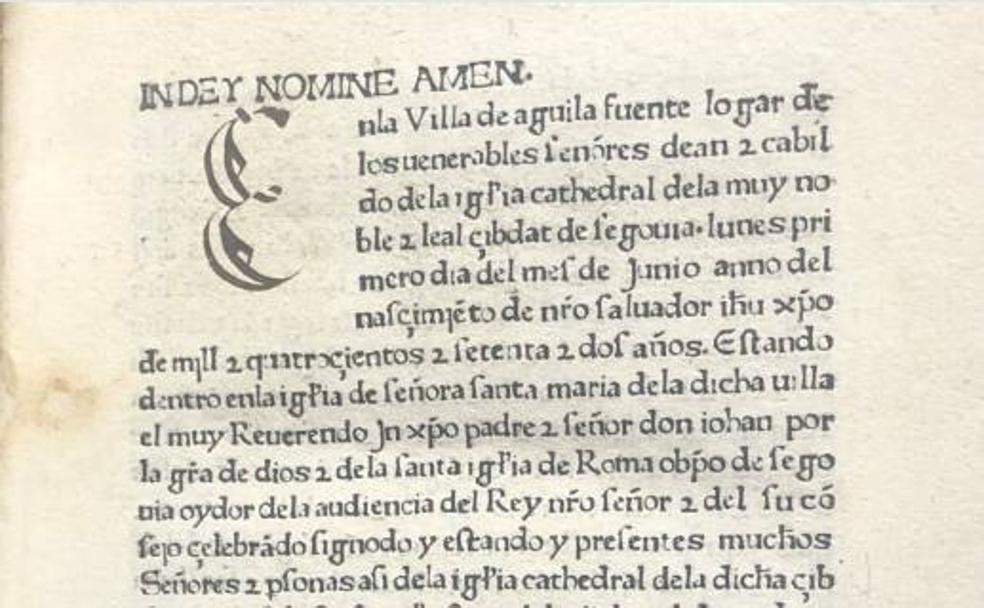 IN DEY NOMINE AMEN.
Enla Villa de aguila fuente logar de
los uenerables señores dean ⁊ cabil
do dela igl̄ia cathedral dela muy no
ble ⁊ leal çibdat de ſegouia. lunes pri
mero dia del meſ de Junio anno del
naſçimiēto de nr̄o ſaluador ih̄u xp̄o
de mill ⁊ quatroçientos ⁊ ſetenta ⁊ doſ años. Eſtando
dentro enla igl̄ia de ſeñora ſanta maria dela dicha uilla
el muy Reuerendo Jn xp̄o padre ⁊ ſeñor don iohan por
la gr̄a de dios ⁊ dela ſanta igl̄ia de Roma obp̄o de ſego
uia oydor dela audiencia del Rey nr̄o ſeñor ⁊ del ſu cō
ſejo çelebrādo ſignodo y eſtando y preſentes muchos
Señores ⁊ pſonas aſi dela igl̄ia cathedral dela dicha çib